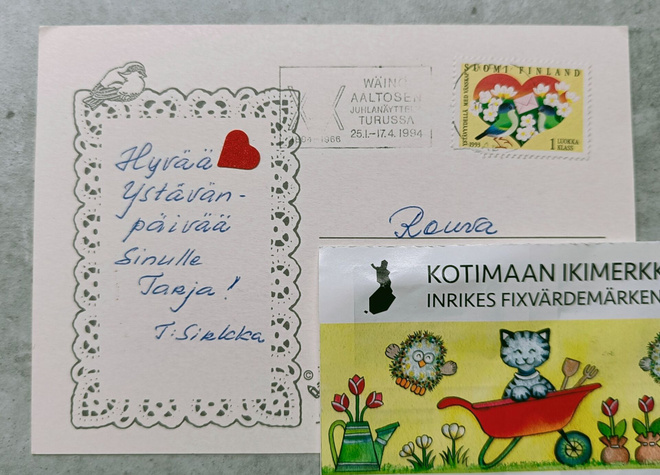 WÄINÖ
AALTOSEN
JUHLANÄYTTELY
TURUSSA
25.1.–17.4. 1994
1894-1966
SUOMI FINLAND
1993
1 LUOKKA
KLASS
Hyvää
Ystävän-
päivää
Sinulle
Tarja!
T: Sirkka
Rouva
©
KOTIMAAN IKIMERKK
INRIKES FIXVÄRDEMÄRKEN